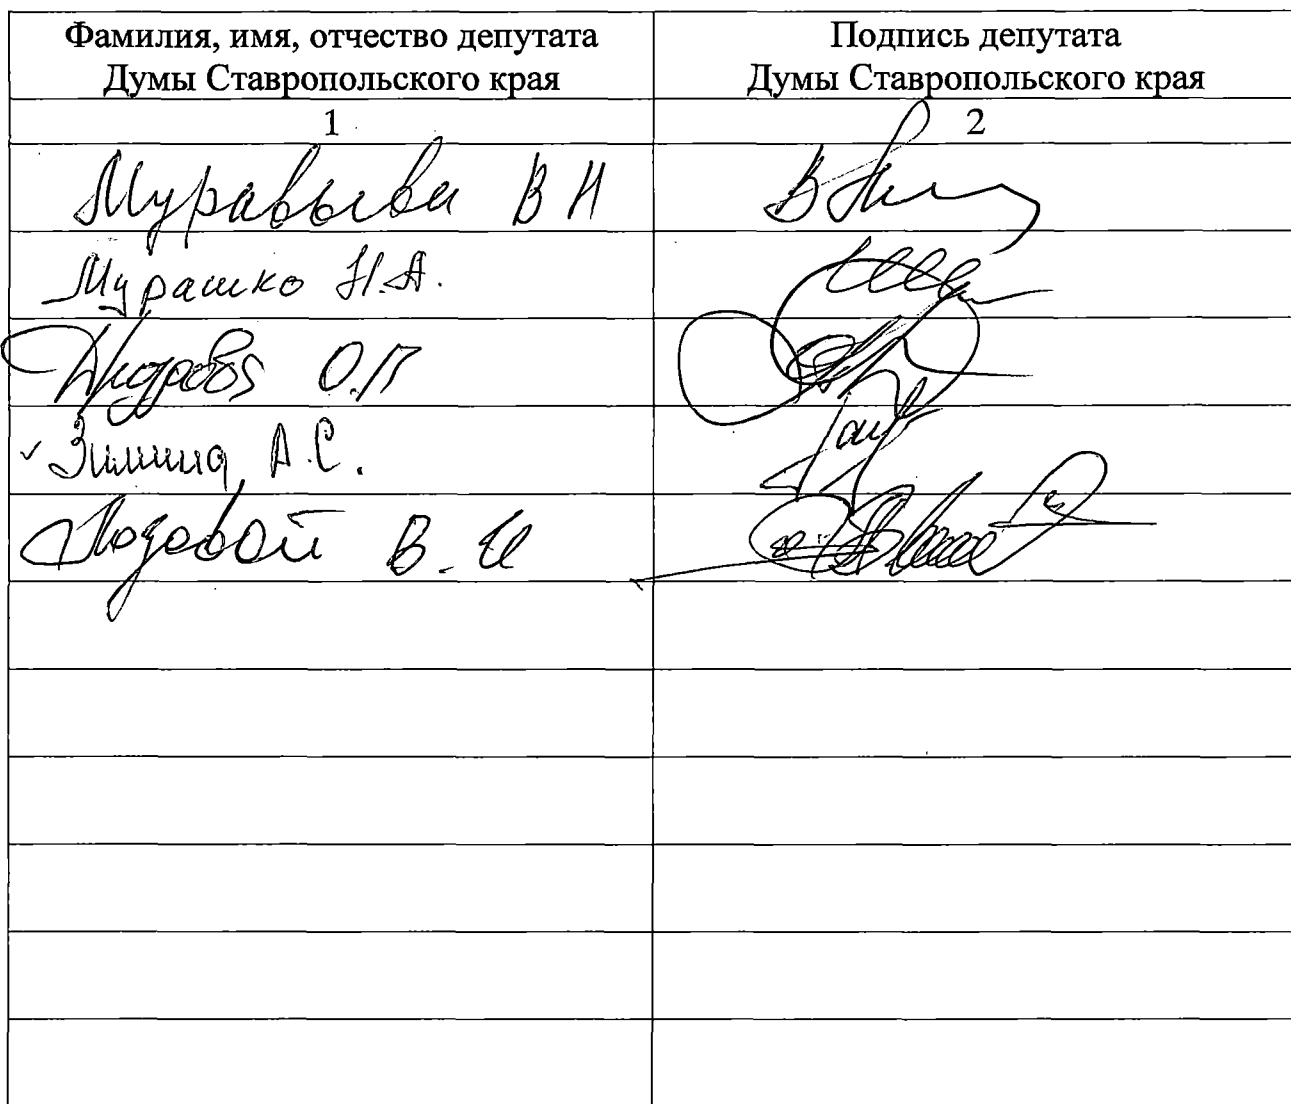 Фамилия, имя, отчество депутата
Думы Ставропольского края
Подпись депутата
Думы Ставропольского края
1
2
Муравьёва В Н
Мурашко Н.А.
О.П
Зимина А.С.
Лозовой В. И